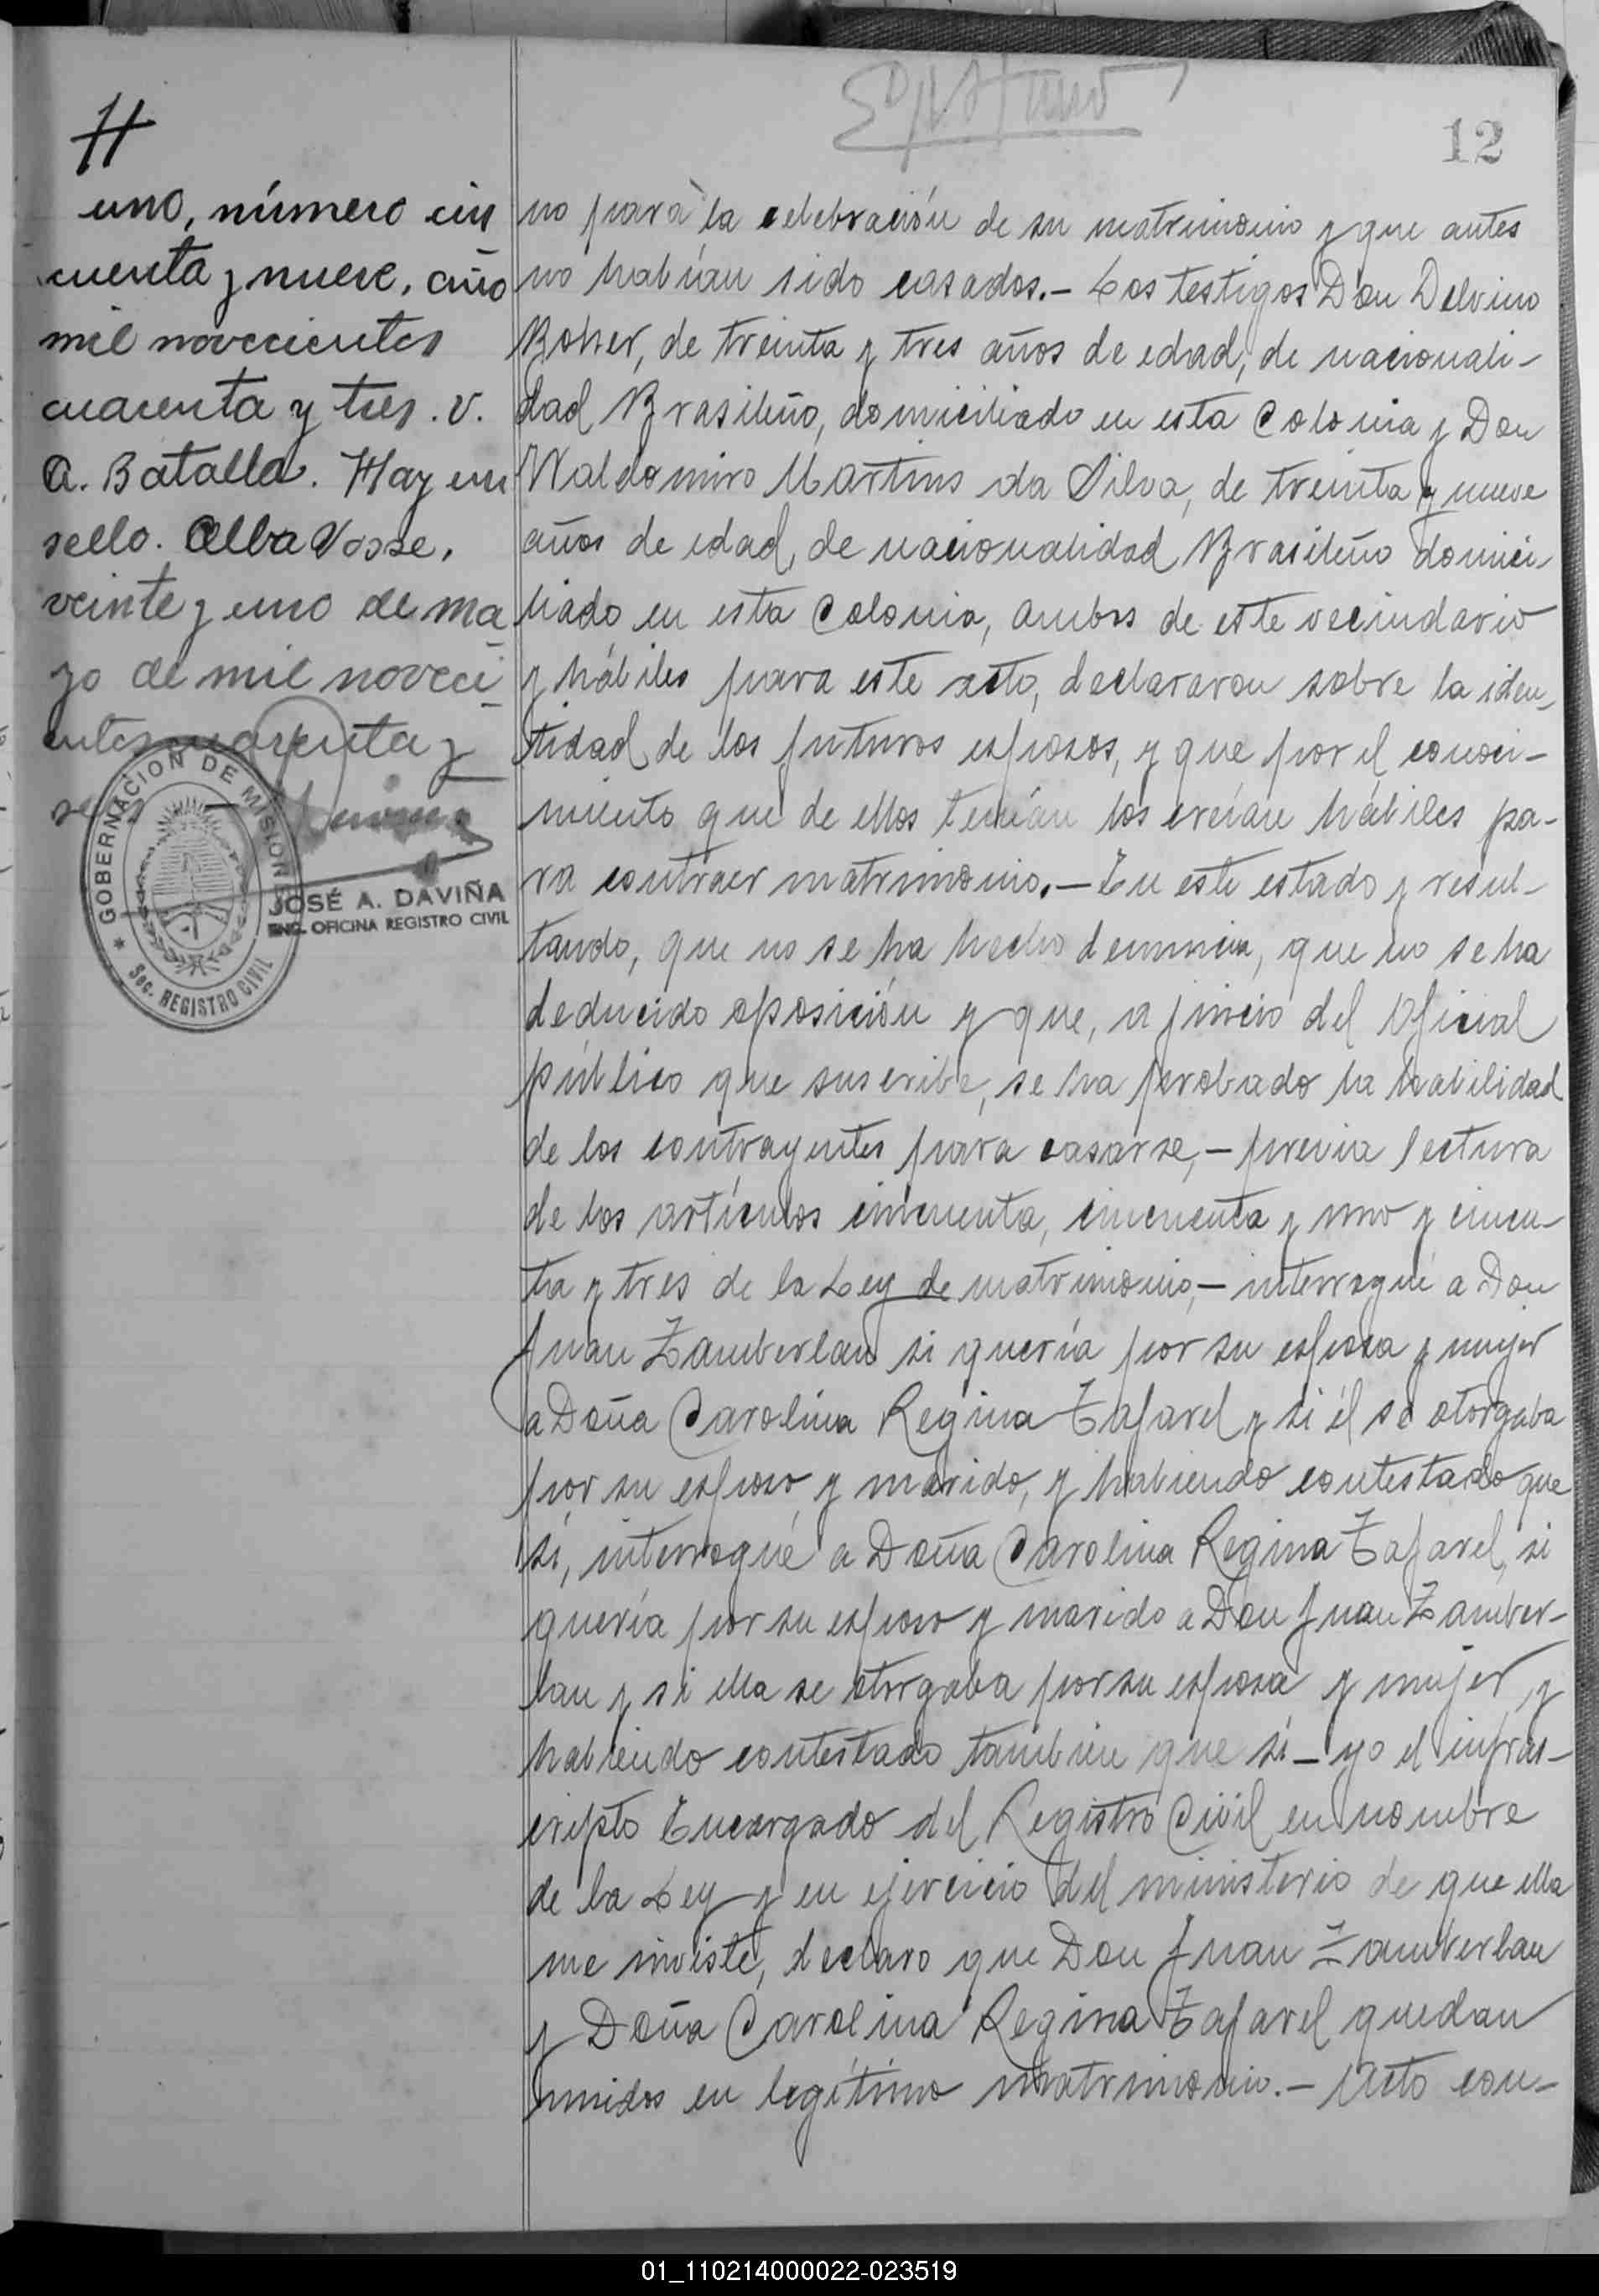 12
uno, número cin
cuenta y nueve, año
mil novecientos
cuarenta y tres. V.
A. Batalla. Hay un
sello. Alba Vosse,
veinte y uno de ma
yo de mil noveci
entos cuarenta y
seis
GOBERNACION DE MISIONES
Sec. REGISTRO CIVIL
JOSÉ A. DAVIÑA
ENC. OFICINA REGISTRO CIVIL
no para la celebración de su matrimonio y que antes
no habían sido casados.- Los testigos Don Delvino
Boher, de treinta y tres años de edad, de nacionali-
dad Brasileño, domiciliado en esta Colonia y Don
Waldomiro Martins da Silva, de treinta y nueve
años de edad, de nacionalidad Brasileño domici-
liado en esta Colonia, ambos de este vecindario
y hábiles para este acto, declararon sobre la iden-
tidad de los futuros esposos, y que por el conoci-
miento que de ellos tenían los creían hábiles pa-
ra contraer matrimonio.- En este estado y resul-
tando, que no se ha hecho denuncia, que no se ha
deducido oposición y que, a juicio del Oficial
público que suscribe, se ha probado la habilidad
de los contrayentes para casarse,- previa lectura
de los artículos cincuenta, cincuenta y uno y cincuen-
ta y tres de la Ley de matrimonio,- interrogué a Don
Juan Zamberlan si quería por su esposa y mujer
a Doña Carolina Regina Tafarel y si él se otorgaba
por su esposo y marido, y habiendo contestado que
sí, interrogué a Doña Carolina Regina Tafarel, si
quería por su esposo y marido a Don Juan Zamber-
lan y si ella se otorgaba por su esposa y mujer, y
habiendo contestado también que sí - yo el infras-
cripto Encargado del Registro Civil en nombre
de la Ley y en ejercicio del ministerio de que ella
me inviste, declaro que Don Juan Zamberlan
y Doña Carolina Regina Tafarel quedan
unidos en legítimo matrimonio.- Acto con-
01_110214000022-023519